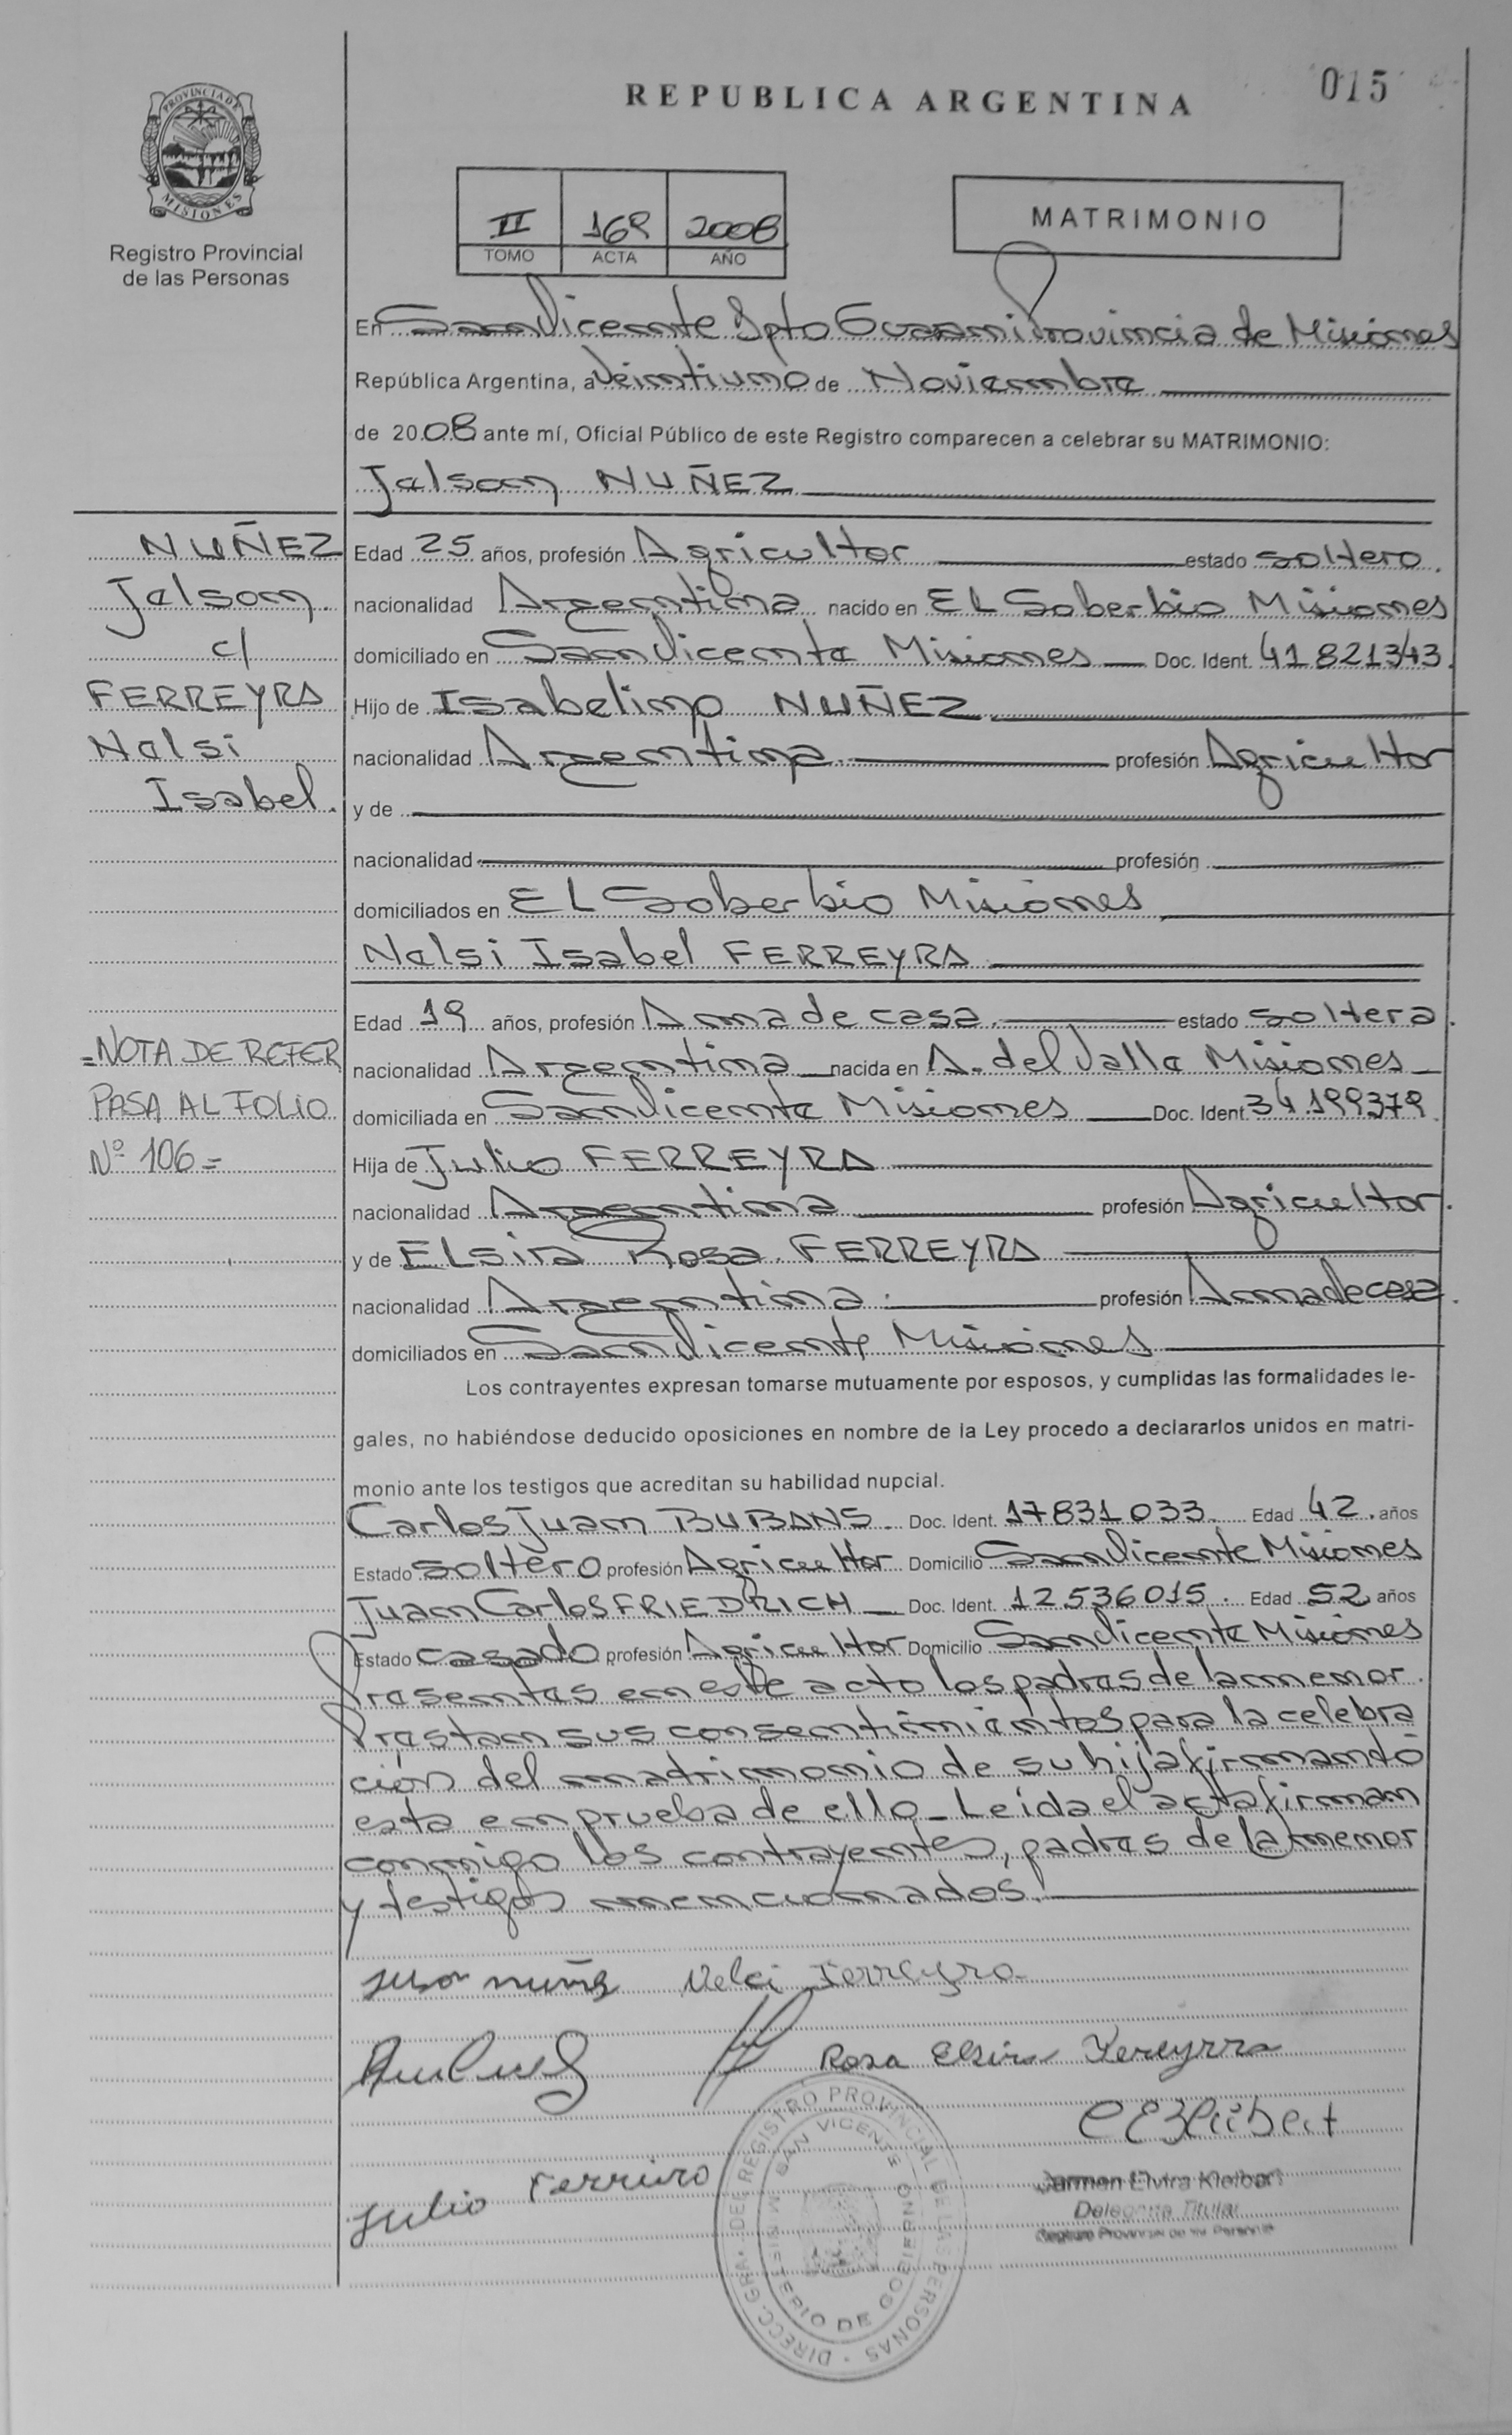 015
REPUBLICA ARGENTINA
PROVINCIA DE
MISIONES
Registro Provincial
de las Personas
II 169 2008
TOMO ACTA AÑO
MATRIMONIO
En San Vicente Dpto Guaraní Provincia de Misiones
República Argentina, a Veintiuno de Noviembre
de 2008 ante mí, Oficial Público de este Registro comparecen a celebrar su MATRIMONIO:
Jelson NUÑEZ
NUÑEZ
Jelson
c/
FERREYRA
Nelsi
Isabel.
Edad 25 años, profesión Agricultor estado soltero.
nacionalidad Argentina nacido en EL Soberbio Misiones
domiciliado en San Vicente Misiones Doc. Ident. 41 821343.
Hijo de Isabelino NUÑEZ
nacionalidad Argentina profesión Agricultor
y de
nacionalidad profesión
domiciliados en EL Soberbio Misiones
Nelsi Isabel FERREYRA
=NOTA DE REFER
PASA AL FOLIO
Nº 106=
Edad 19 años, profesión Ama de casa. estado soltera.
nacionalidad Argentina nacida en A. del Valle Misiones
domiciliada en San Vicente Misiones Doc. Ident. 34.199379.
Hija de Julio FERREYRA
nacionalidad Argentina profesión Agricultor.
y de ELsira Rosa FERREYRA
nacionalidad Argentina. profesión Ama de casa.
domiciliados en San Vicente Misiones
Los contrayentes expresan tomarse mutuamente por esposos, y cumplidas las formalidades le-
gales, no habiéndose deducido oposiciones en nombre de la Ley procedo a declararlos unidos en matri-
monio ante los testigos que acreditan su habilidad nupcial.
Carlos Juan BUBANS Doc. Ident. 17831033. Edad 42. años
Estado soltero profesión Agricultor Domicilio San Vicente Misiones
Juan Carlos FRIEDRICH Doc. Ident. 12.536015. Edad 52 años
Estado casado profesión Agricultor Domicilio San Vicente Misiones
Presentes en este acto los padres de la menor.
Prestan sus consentimientos para la celebra
ción del matrimonio de su hija firmando
esta en prueba de ello_ Leída el acta firman
conmigo los contrayentes, padres de la menor
y testigos mencionados.
Nelsi Ferreyra
Rosa Elsira Fereyrra
Julio Ferriiro
Carmen Elvira Kleibert
Delegada Titular
Registro Provincial de las Personas
DIRECC. GRAL. DEL REGISTRO PROVINCIAL DE LAS PERSONAS
SAN VICENTE
MINISTERIO DE GOBIERNO